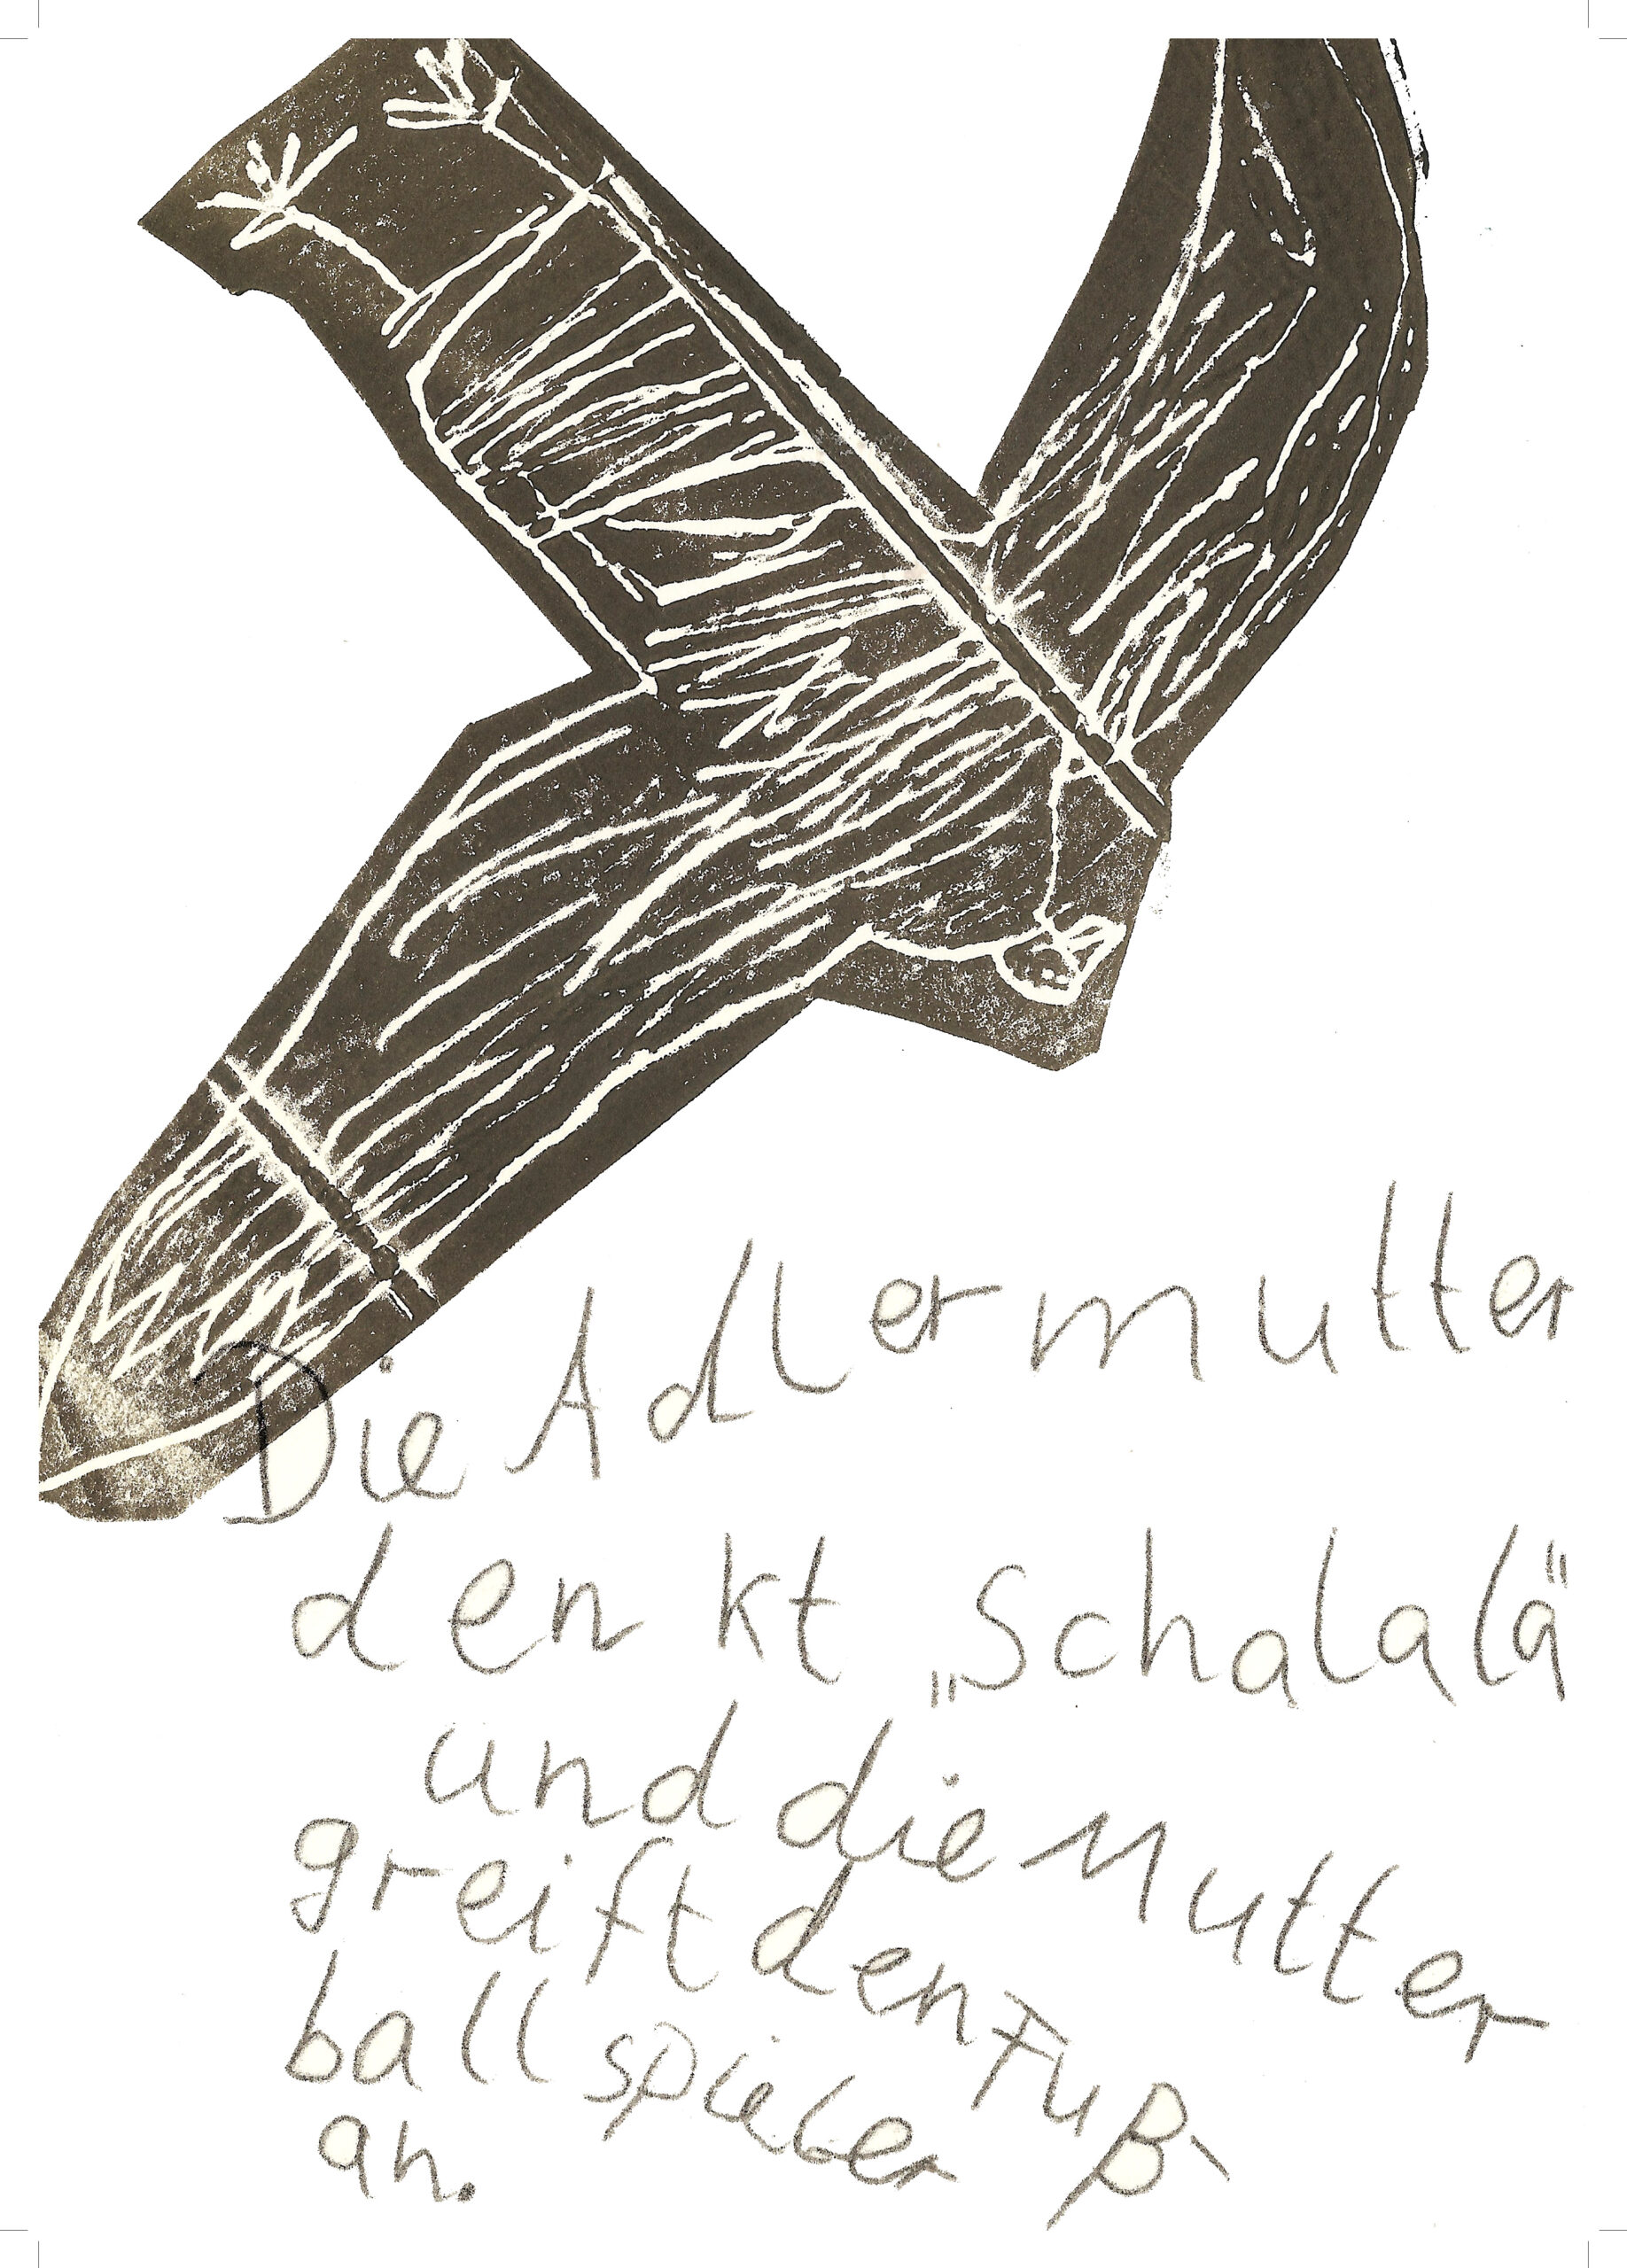 Die Adlermutter
denkt „Schalala"
und die Mutter
greift den Fuß-
ballspieler
an.